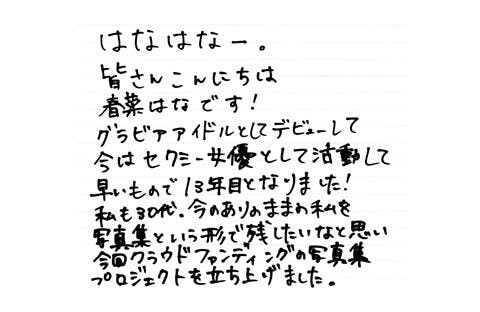 はなはなー。
皆さんこんにちは
春菜はなです！
グラビアアイドルとしてデビューして
今はセクシー女優として活動して
早いもので13年目となりました！
私も30代。今のありのままの私を
写真集という形で残したいなと思い
今回クラウドファンディングの写真集
プロジェクトを立ち上げました。